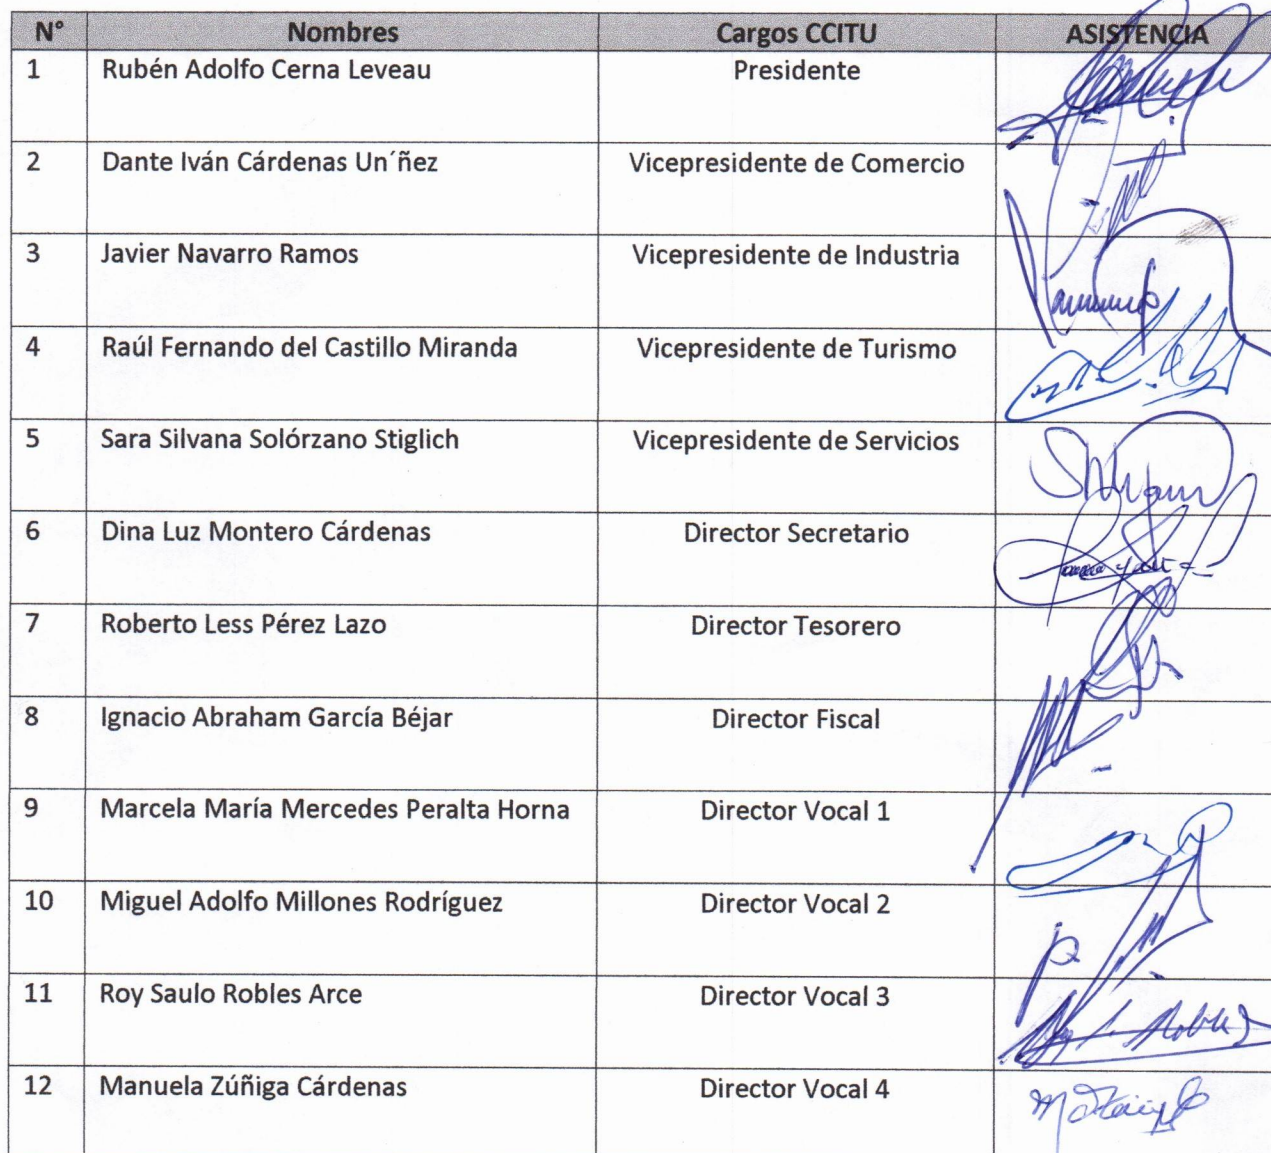 N° Nombres Cargos CCITU ASISTENCIA
1 Rubén Adolfo Cerna Leveau Presidente
2 Dante Iván Cárdenas Un´ñez Vicepresidente de Comercio
3 Javier Navarro Ramos Vicepresidente de Industria
4 Raúl Fernando del Castillo Miranda Vicepresidente de Turismo
5 Sara Silvana Solórzano Stiglich Vicepresidente de Servicios
6 Dina Luz Montero Cárdenas Director Secretario
7 Roberto Less Pérez Lazo Director Tesorero
8 Ignacio Abraham García Béjar Director Fiscal
9 Marcela María Mercedes Peralta Horna Director Vocal 1
10 Miguel Adolfo Millones Rodríguez Director Vocal 2
11 Roy Saulo Robles Arce Director Vocal 3
12 Manuela Zúñiga Cárdenas Director Vocal 4